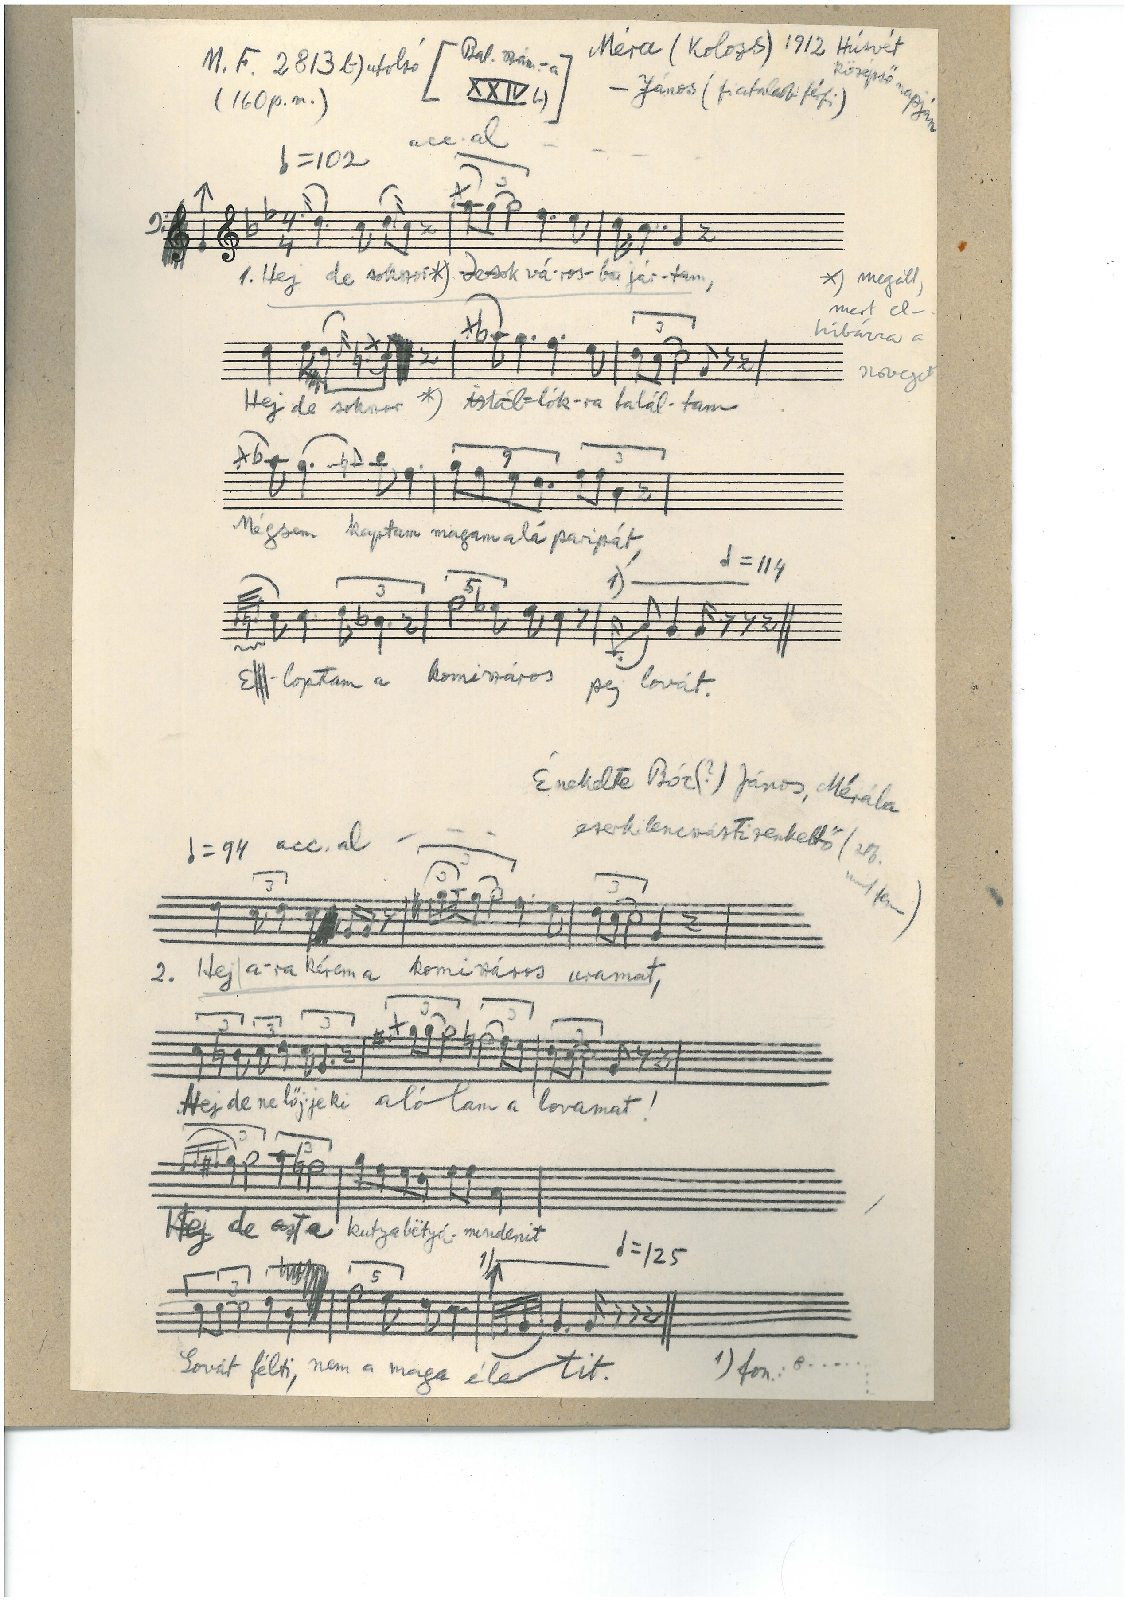 M. F. 2813 b) utolsó
(160 p.m.)
[Bal. szám.-a
XXIV b)]
Méra (Kolozs) 1912 Húsvét
középső napján
– János (fiatalabb férfi)
acc. al – – – –
♩=102
3
1. Hej de sokszor *) de sok vá-ros-ba jár-tam,
*) megáll,
mert el-
hibázza a
szöveget
3
Hej de sokszor *) istál-lók-ra talál-tam
3
Mégsem kaptam magam alá paripát,
♩=114
3 5 1)
El-loptam a komiszáros pej lovát.
Énekelte Bóc(?) János, Mérába
ezerkilencszáztizenkettő
♩=94 acc. al – – –
3 3 3 3
2. Hej arra kérem a komiszáros uramat,
3 3 3 3 3 3
Hej de ne lőj-je ki alólam a lovamat!
3 3
Hej de azt a kutyabëtyá- mindenit
1) ♩=125
3 5
Lovát félti, nem a maga életit.
1) fon.: